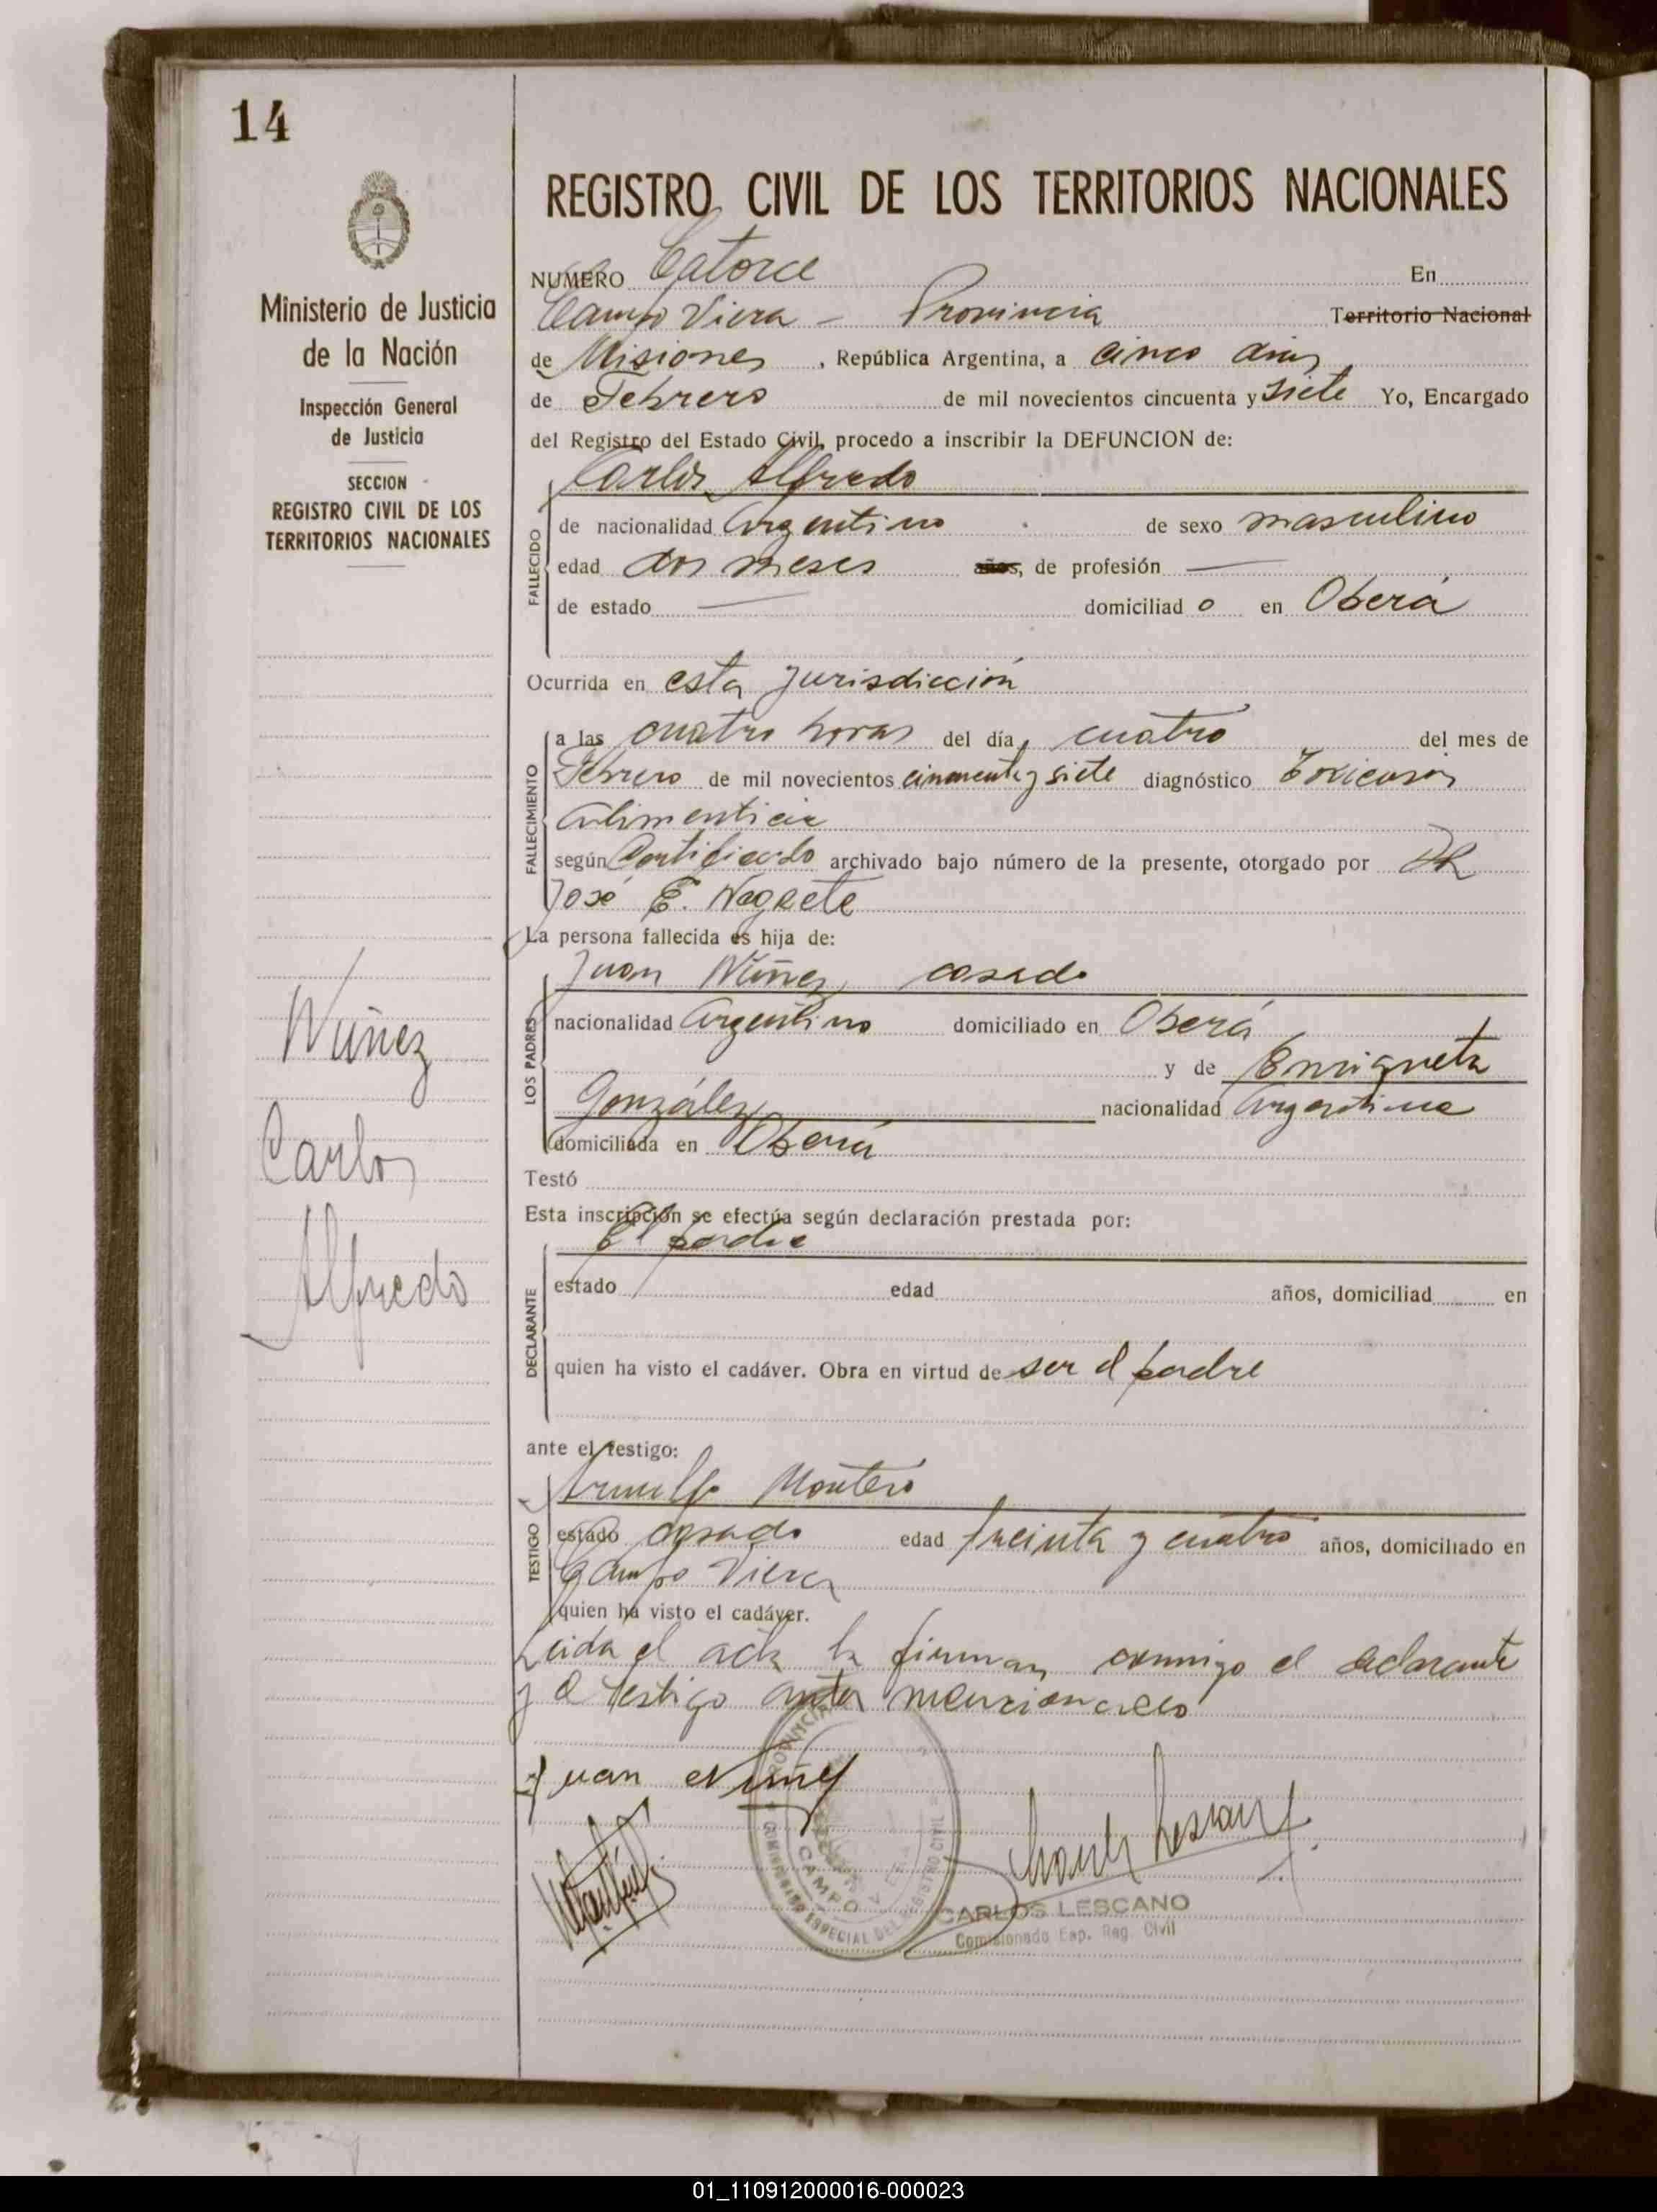 14
Ministerio de Justicia
de la Nación
Inspección General
de Justicia
SECCION
REGISTRO CIVIL DE LOS
TERRITORIOS NACIONALES
Núñez
Carlos
Alfredo
REGISTRO CIVIL DE LOS TERRITORIOS NACIONALES
NUMERO Catorce En
Campo Viera - Provincia Territorio Nacional
de Misiones, República Argentina, a cinco dias
de Febrero de mil novecientos cincuenta y siete Yo, Encargado
del Registro del Estado Civil, procedo a inscribir la DEFUNCION de:
Carlos Alfredo
FALLECIDO
de nacionalidad Argentino de sexo masculino
edad dos meses años, de profesión —
de estado — domiciliad o en Oberá
Ocurrida en esta Jurisdicción
FALLECIMIENTO
a las cuatro horas del día, cuatro del mes de
Febrero de mil novecientos cincuenta y siete diagnóstico Toxicosis
alimenticia
según Certificado archivado bajo número de la presente, otorgado por DR
José E. Negrete
La persona fallecida es hija de:
LOS PADRES
Juan Núñez, casado
nacionalidad Argentino domiciliado en Oberá
y de Enriqueta
González nacionalidad Argentina
domiciliada en Oberá
Testó
Esta inscripción se efectúa según declaración prestada por:
DECLARANTE
El padre
estado edad años, domiciliad en
quien ha visto el cadáver. Obra en virtud de ser el padre
ante el testigo:
TESTIGO
Arnulfo Montero
estado casado edad treinta y cuatro años, domiciliado en
Campo Viera
quien ha visto el cadáver.
Leida el acta la firman conmigo el declarante
y el testigo antes mencionado
Juan Nuñez
PROVINCIA
CAMPO VIERA
COMISION ESPECIAL DEL REGISTRO CIVIL
Carlos Lescano
CARLOS LESCANO
Comisionado Esp. Reg. Civil
01_110912000016-000023